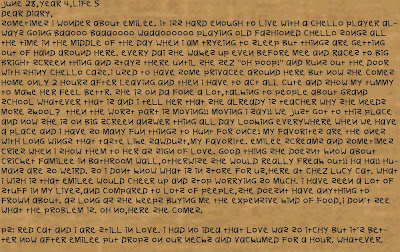 June 28, Year 4, Life 5
Dear Diary,
Sometimes I wonder about Emilee. It iss hard enough to live with a chello player al-
ways going baaooo baaaoooo waaooooooo playing old fashioned chello songs all
the time in the middle of the day when I am treying to sleep but things are getting
out of hand around here. Every dai she wakes up even before mee and races to big
bright screen thing and stays there until she sez "Oh poop!" and runs out the door
with shiny chello case. I used to have some privacee around here but now she comes
home only 2 hours after leaving and then I have to act all cute and show my tummy
to make her feel bettr. She is on da fone a lot, talking to people about grand
school whatever that is and I tell her that she already is teacher why she needs
more skool? Then the worst part is moving! Moving I say!! We just got to this place
and now she is on big screen answer thing all day looking everywhere when we have
a place and I have so many fun things to hunt for once! My favorites are the ones
with long wings that taste like sawdust, my favorite. Emilee screams and sometimes
cries when I show them to her as sign of love. Good thing she doesnt know about
cricket familee in bathroom wall, otherwise she would really freak out!! Ha ha!! Hu-
mans are so weird. So I don't know what is in store for us, here at Chez Lucy Cat. What
I wish is that Emilee would cheer up and stop worrying so much. I have seen a lot of
stuff in my lives, and compared to lots of people, she doesnt have anything to
frown about. As long as she keeps buying me the expensive kind of food, I don't see
what the problem is. Oh no, here she comes.
PS: Red Cat and I are still in love. I had no idea that love was so itchy but it's bet-
ter now after Emilee put drops on our necks and vachumed for a hour. Whatever.